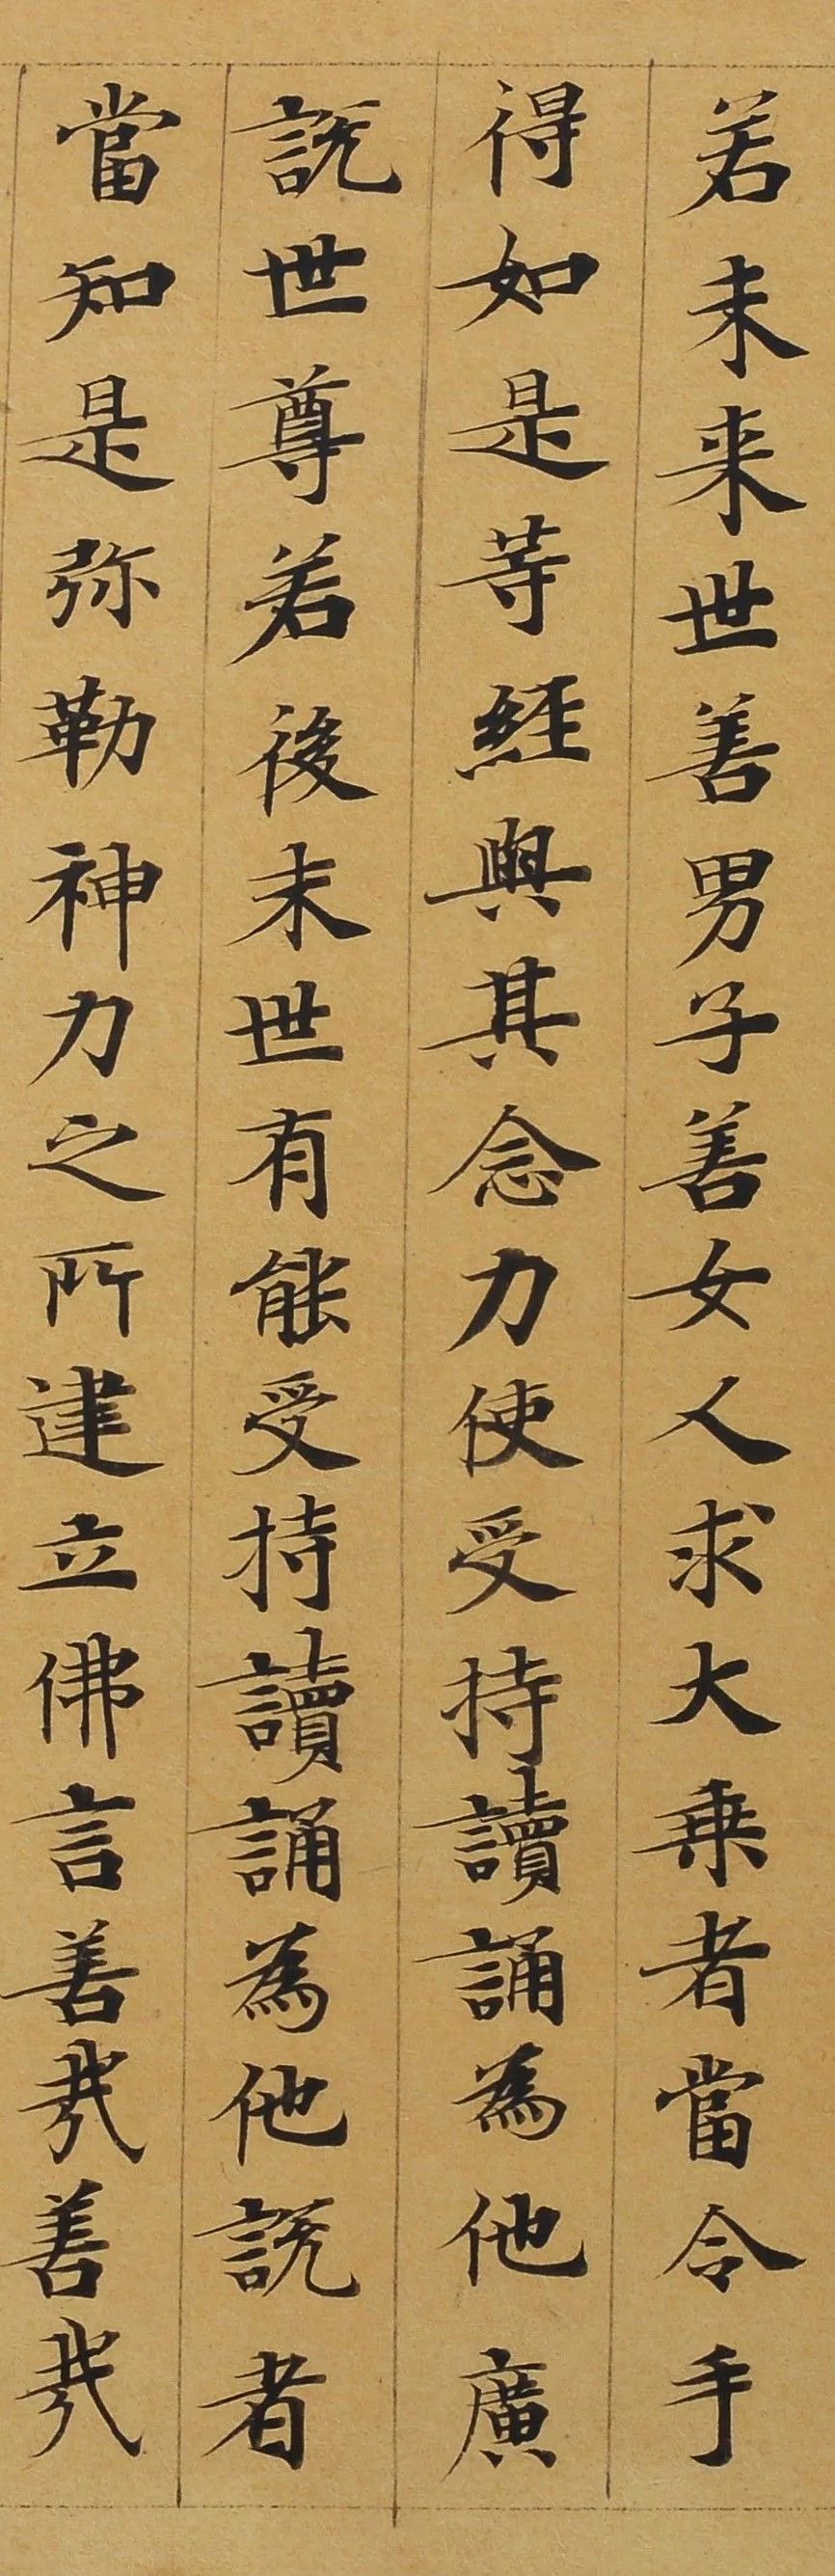 若未来世善男子善女人求大乗者當令手
得如是等經與其念力使受持讀誦為他廣
說世尊若後末世有能受持讀誦為他說者
當知是弥勒神力之所建立佛言善哉善哉